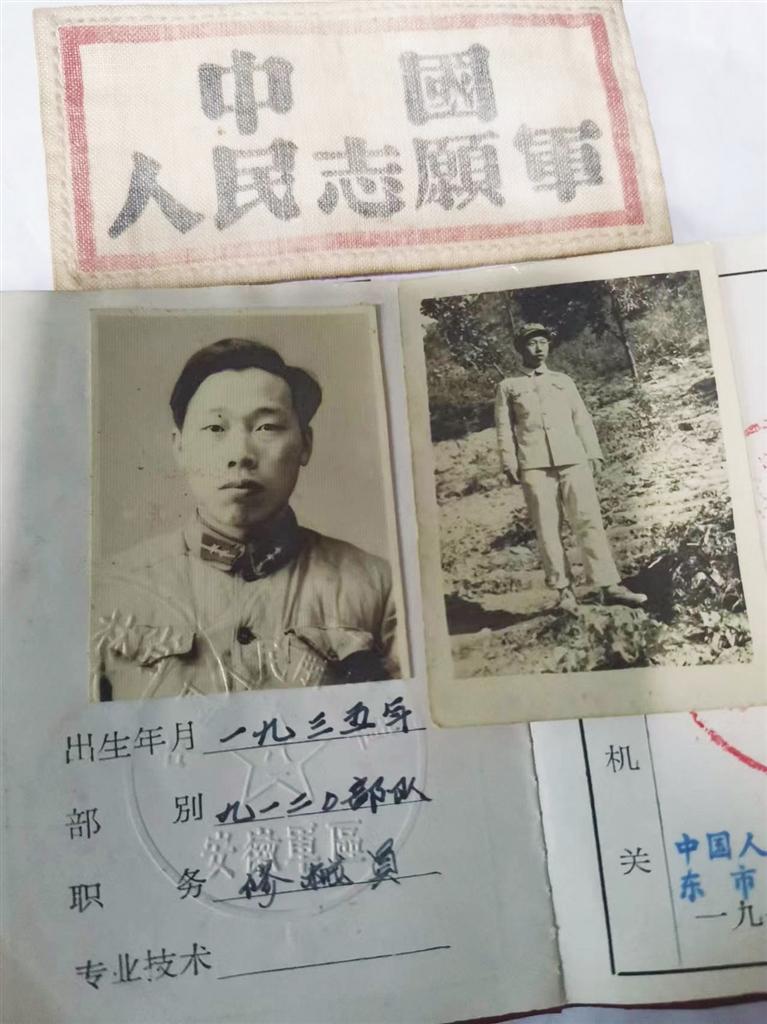 中國
人民志願軍
出生年月 一九三五年
部别 九一二〇部队
职务 修械員
专业技术
安徽軍區
机关
中国人
东市
一九